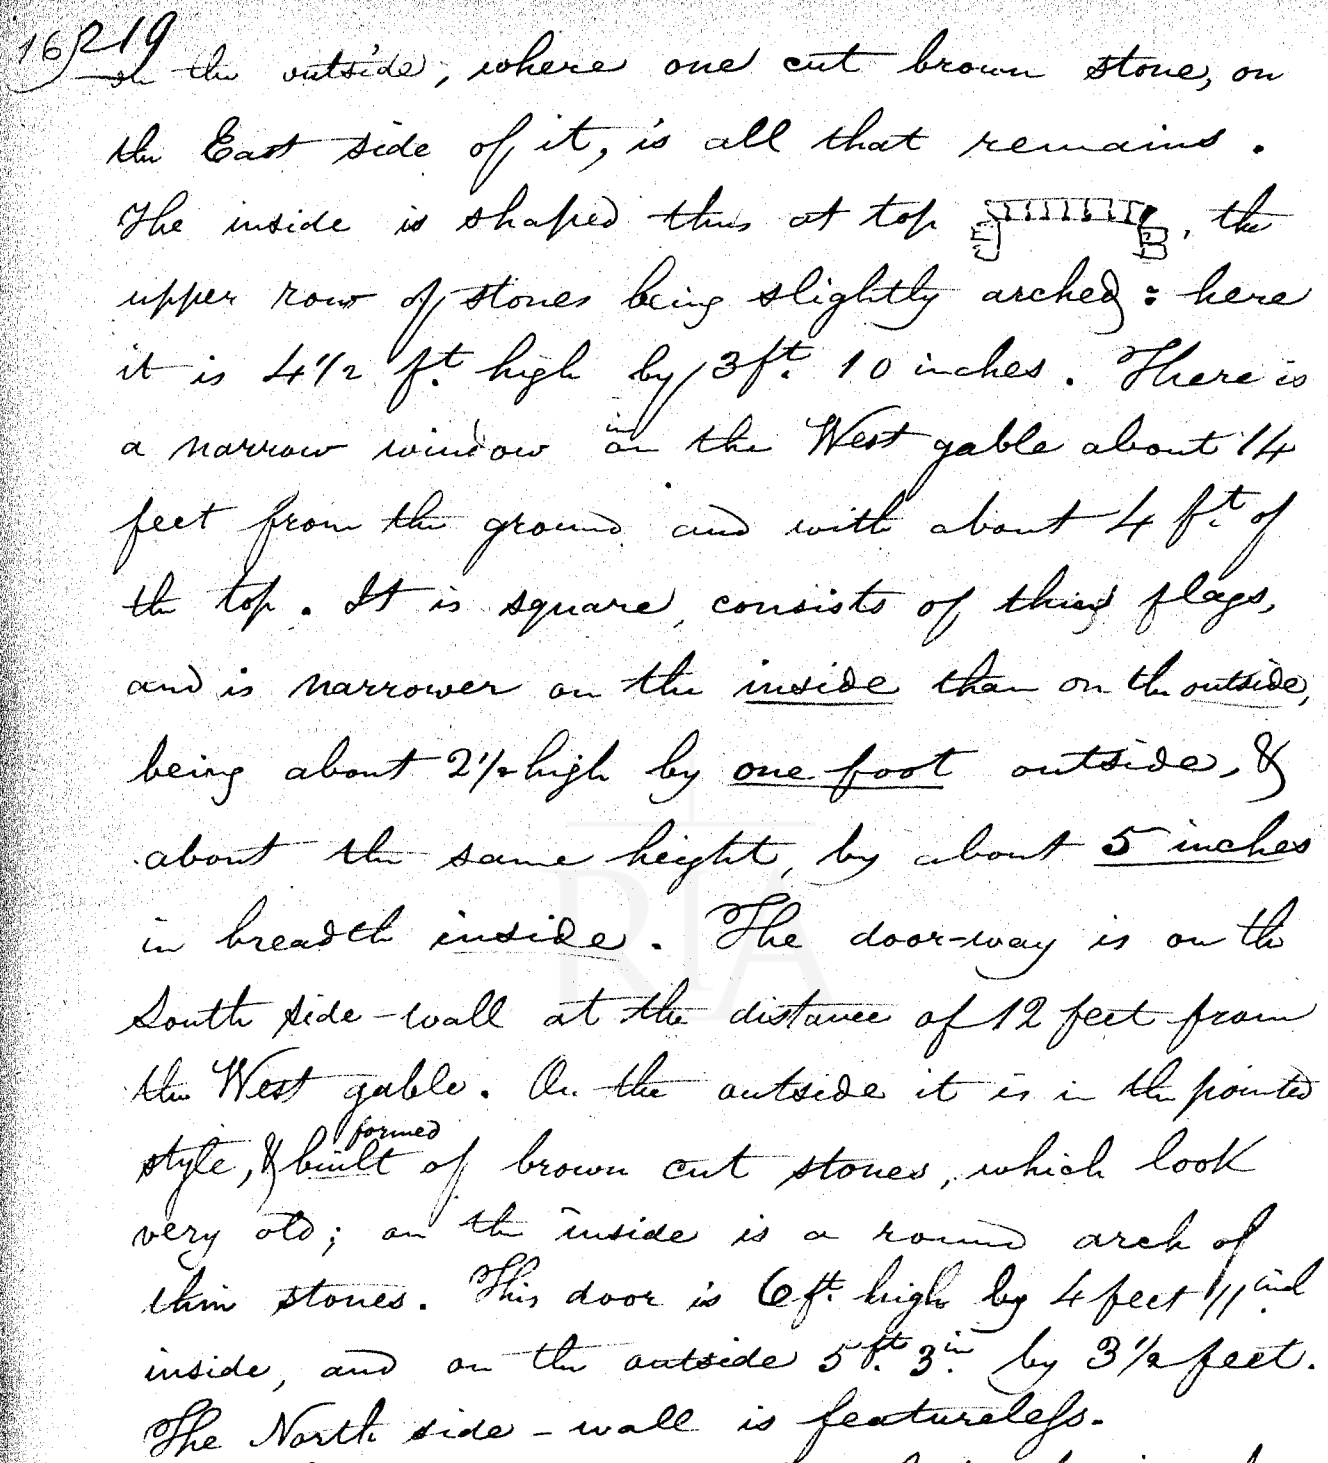 16) 219
on the outside, where one cut brown stone, on
the East side of it, is all that remains.
The inside is shaped thus at top , the
upper row of stones being slightly arched: here
it is 4 1/2 ft. high by 3 ft. 10 inches. There is
a narrow window in the West gable about 14
feet from the ground and with about 4 ft. of
the top. It is square, consists of thin flags,
and is narrower on the inside than on the outside,
being about 2 1/2 high by one foot outside, &
about the same height, by about 5 inches
in breadth inside. The door-way is on the
South side-wall at the distance of 12 feet from
the West gable. On the outside it is in the pointed
formed
style, & built of brown cut stones, which look
very old; on the inside is a round arch of
thin stones. This door is 6 ft. high by 4 feet 11 inch
inside, and on the outside 5 ft. 3 in. by 3 1/2 feet.
The North side-wall is featureless.
RIA